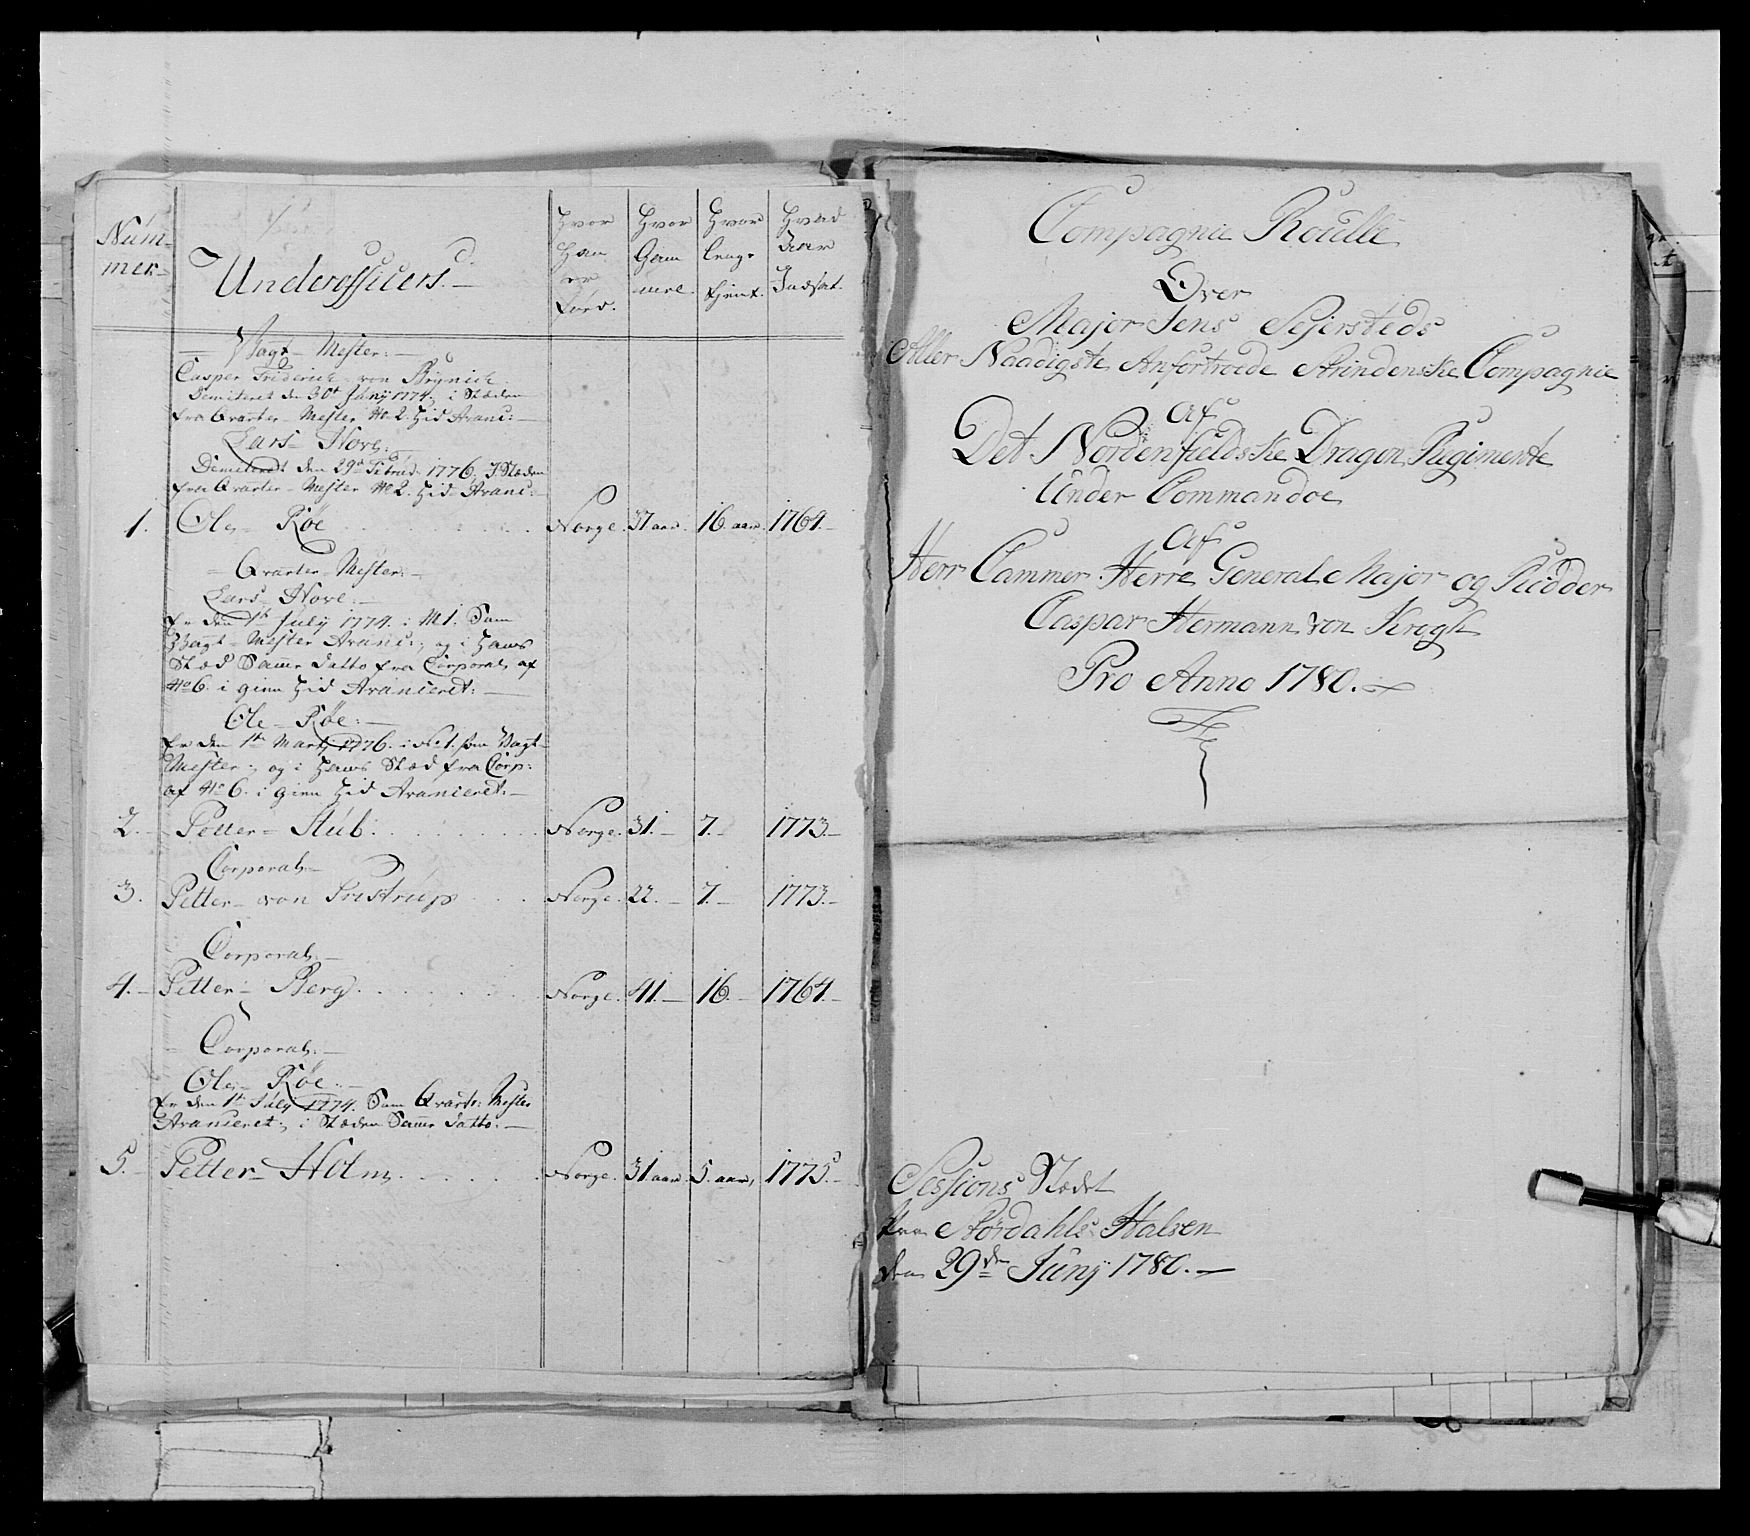 Num-
mer.
Underofficers.
Hvor
Han
er
Født.
Hvor
Gam
mel.
Hvor
længe
tient.
Hvad
Aar
Indsat.
Vagt-Mester:
Casper Friderich von Brynich
Demiteret den 30t Junÿ 1774. i Stæden
fra Qvarter-Mester No 2. hid Avanc:
Lars Hove:
Demiteret den 29de Febrvd: 1776, I Stæden
fra Qvarter-Mester No 2. hid Avanc:
1. Ole Røe Norge. 37 aar. 16. aar. 1764.
Qvarter-Mester:
Lars Hove:
Er den 1te Julÿ 1774. i No 1. Som
Vagt-Mester Avanc:, og i Hans
Stæd Samme Datto fra Corporal af
No 6. i gien hid Avanceret:
Ole Røe:
Er den 1te Martj 1776. i No 1. som Vagt-
Mester, og i Hans Stæd fra Corp:
af No 6. i gien hid Avanceret:
2. Petter Aub. Norge. 31. 7. 1773.
Corporal
3. Petter von Tristrup Norge. 22. 7. 1773.
Corporal
4. Petter Berg. Norge. 41. 16. 1764.
Corporal:
Ole Røe:
Er den 1te Julÿ 1774. Som Qvarte: Mester
Avanceret, i Stæden Samme Datto.
5. Petter Holm Norge. 31 aar 5. aar, 1775.
Compagnie Roulle
Over
Major Jens Sejersteds
Aller Naadigste Anfortroede Strindenske Compagnie
Af
Det Nordenfieldske Dragon Regimente
Under Commandoe
Af
Herr Cammer Herre General Major og Ridder
Caspar Hermann von Krogh
Pro Anno 1780.
Sessions Stædet
Paa Størdahls Halsen
den 29de Junÿ 1780.